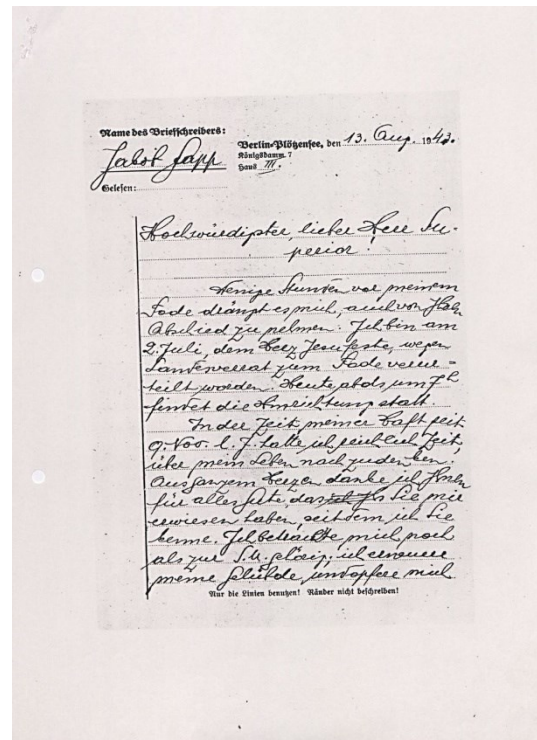 Name des Briefschreibers:
Jakob Gapp
Berlin-Plötzensee, den 13. Aug. 1943.
Königsdamm 7
Haus III.
Gelesen:
Hochwürdigster, lieber Herr Su-
perior!
Wenige Stunden vor meinem
Tode drängt es mich, auch von Ihnen
Abschied zu nehmen. Ich bin am
2. Juli, dem Herz Jesu feste, wegen
Landesverrat zum Tode verur-
teilt worden. Heute abds um 7h
findet die Hinrichtung statt.
In der Zeit meiner Haft seit
9. Nov. l. J. hatte ich reichlich Zeit,
über mein Leben nachzudenken.
Aus ganzem Herzen danke ich Ihnen
für alles Gute, das Sie mir
erwiesen haben, seitdem ich Sie
kenne. Ich betrachte mich noch
als zur S.M. gehörig; ich erneuere
meine Gelübde, und opfere mich
Nur die Linien benutzen! Ränder nicht beschreiben!